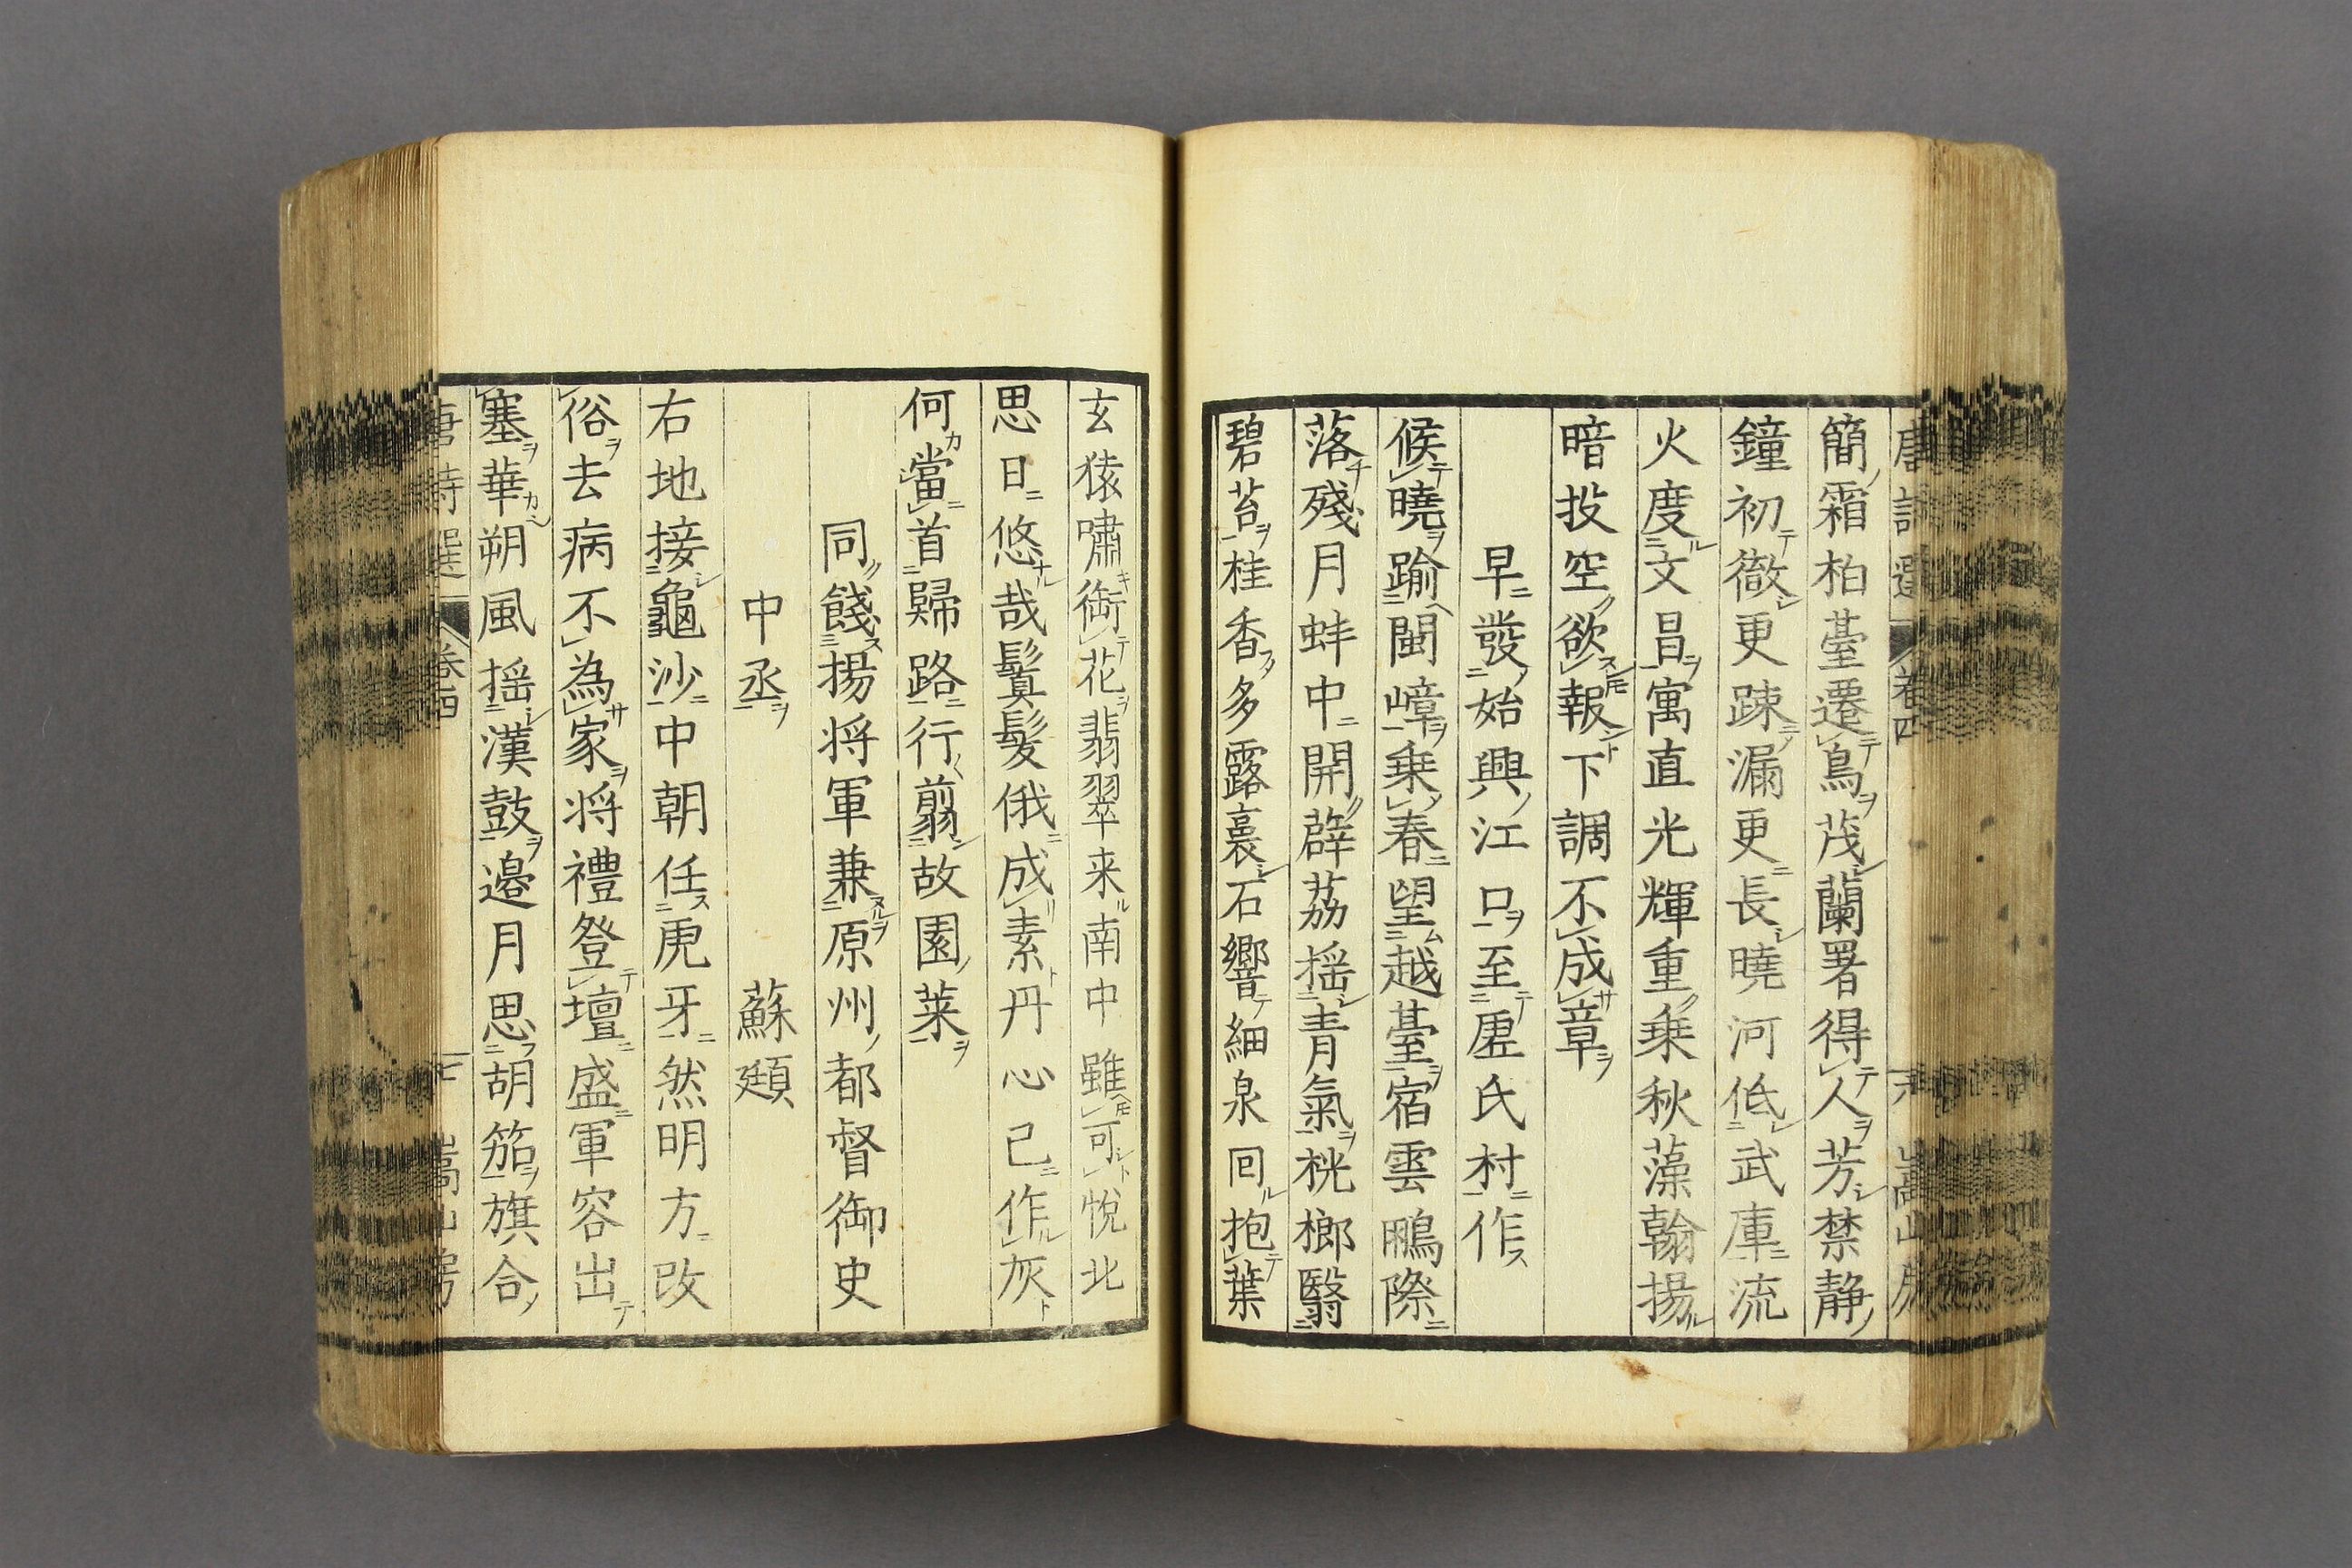 唐詩選 卷四 六 嵩山房
簡霜柏臺遷鳥茂蘭署得人芳禁静
鐘初徹更踈漏更長曉河低武庫流
火度文昌寓直光輝重乗秋藻翰揚
暗投空欲報下調不成章
早發始興江口至虗氏村作
候曉踰閩嶂乗春望越臺宿雲鵬際
落殘月蚌中開薜荔揺青氣桄榔翳
碧苔桂香多露裛石響細泉回抱葉
玄猿嘯銜花翡翠来南中雖可悅北
思日悠哉鬒髮俄成素丹心已作灰
何當首歸路行翦故園莱
同餞揚将軍兼原州都督御史
中丞 蘇頲
右地接龜沙中朝任虎牙然明方改
俗去病不為家将禮登壇盛軍容出
塞華朔風揺漢鼓邉月思胡笳旗合
唐詩選 卷四 七 嵩山房